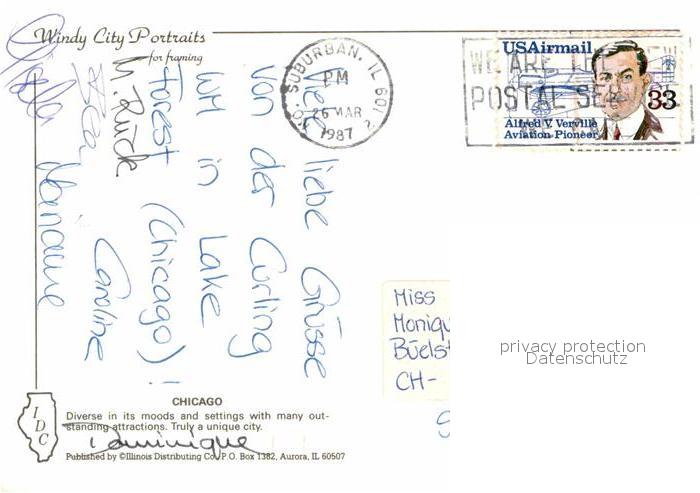 Windy City Portraits
for framing
SUBURBAN, IL 601
PM
26 MAR
1987
WE ARE THE NEW
POSTAL SER
USAirmail
33
Alfred V. Verville
Aviation Pioneer
Viele liebe Grüsse
von der Curling
WM in Lake
Forest (Chicago)!
Caroline
Dominique
Miss
Moniqu
Büelst
CH-
privacy protection
Datenschutz
CHICAGO
Diverse in its moods and settings with many out-
standing attractions. Truly a unique city.
IDC
Published by ©Illinois Distributing Co., P.O. Box 1382, Aurora, IL 60507